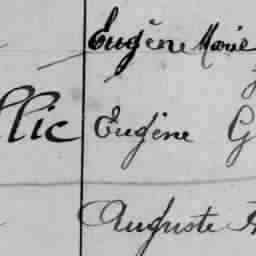 Eugène Marie
llic Eugène G
Auguste